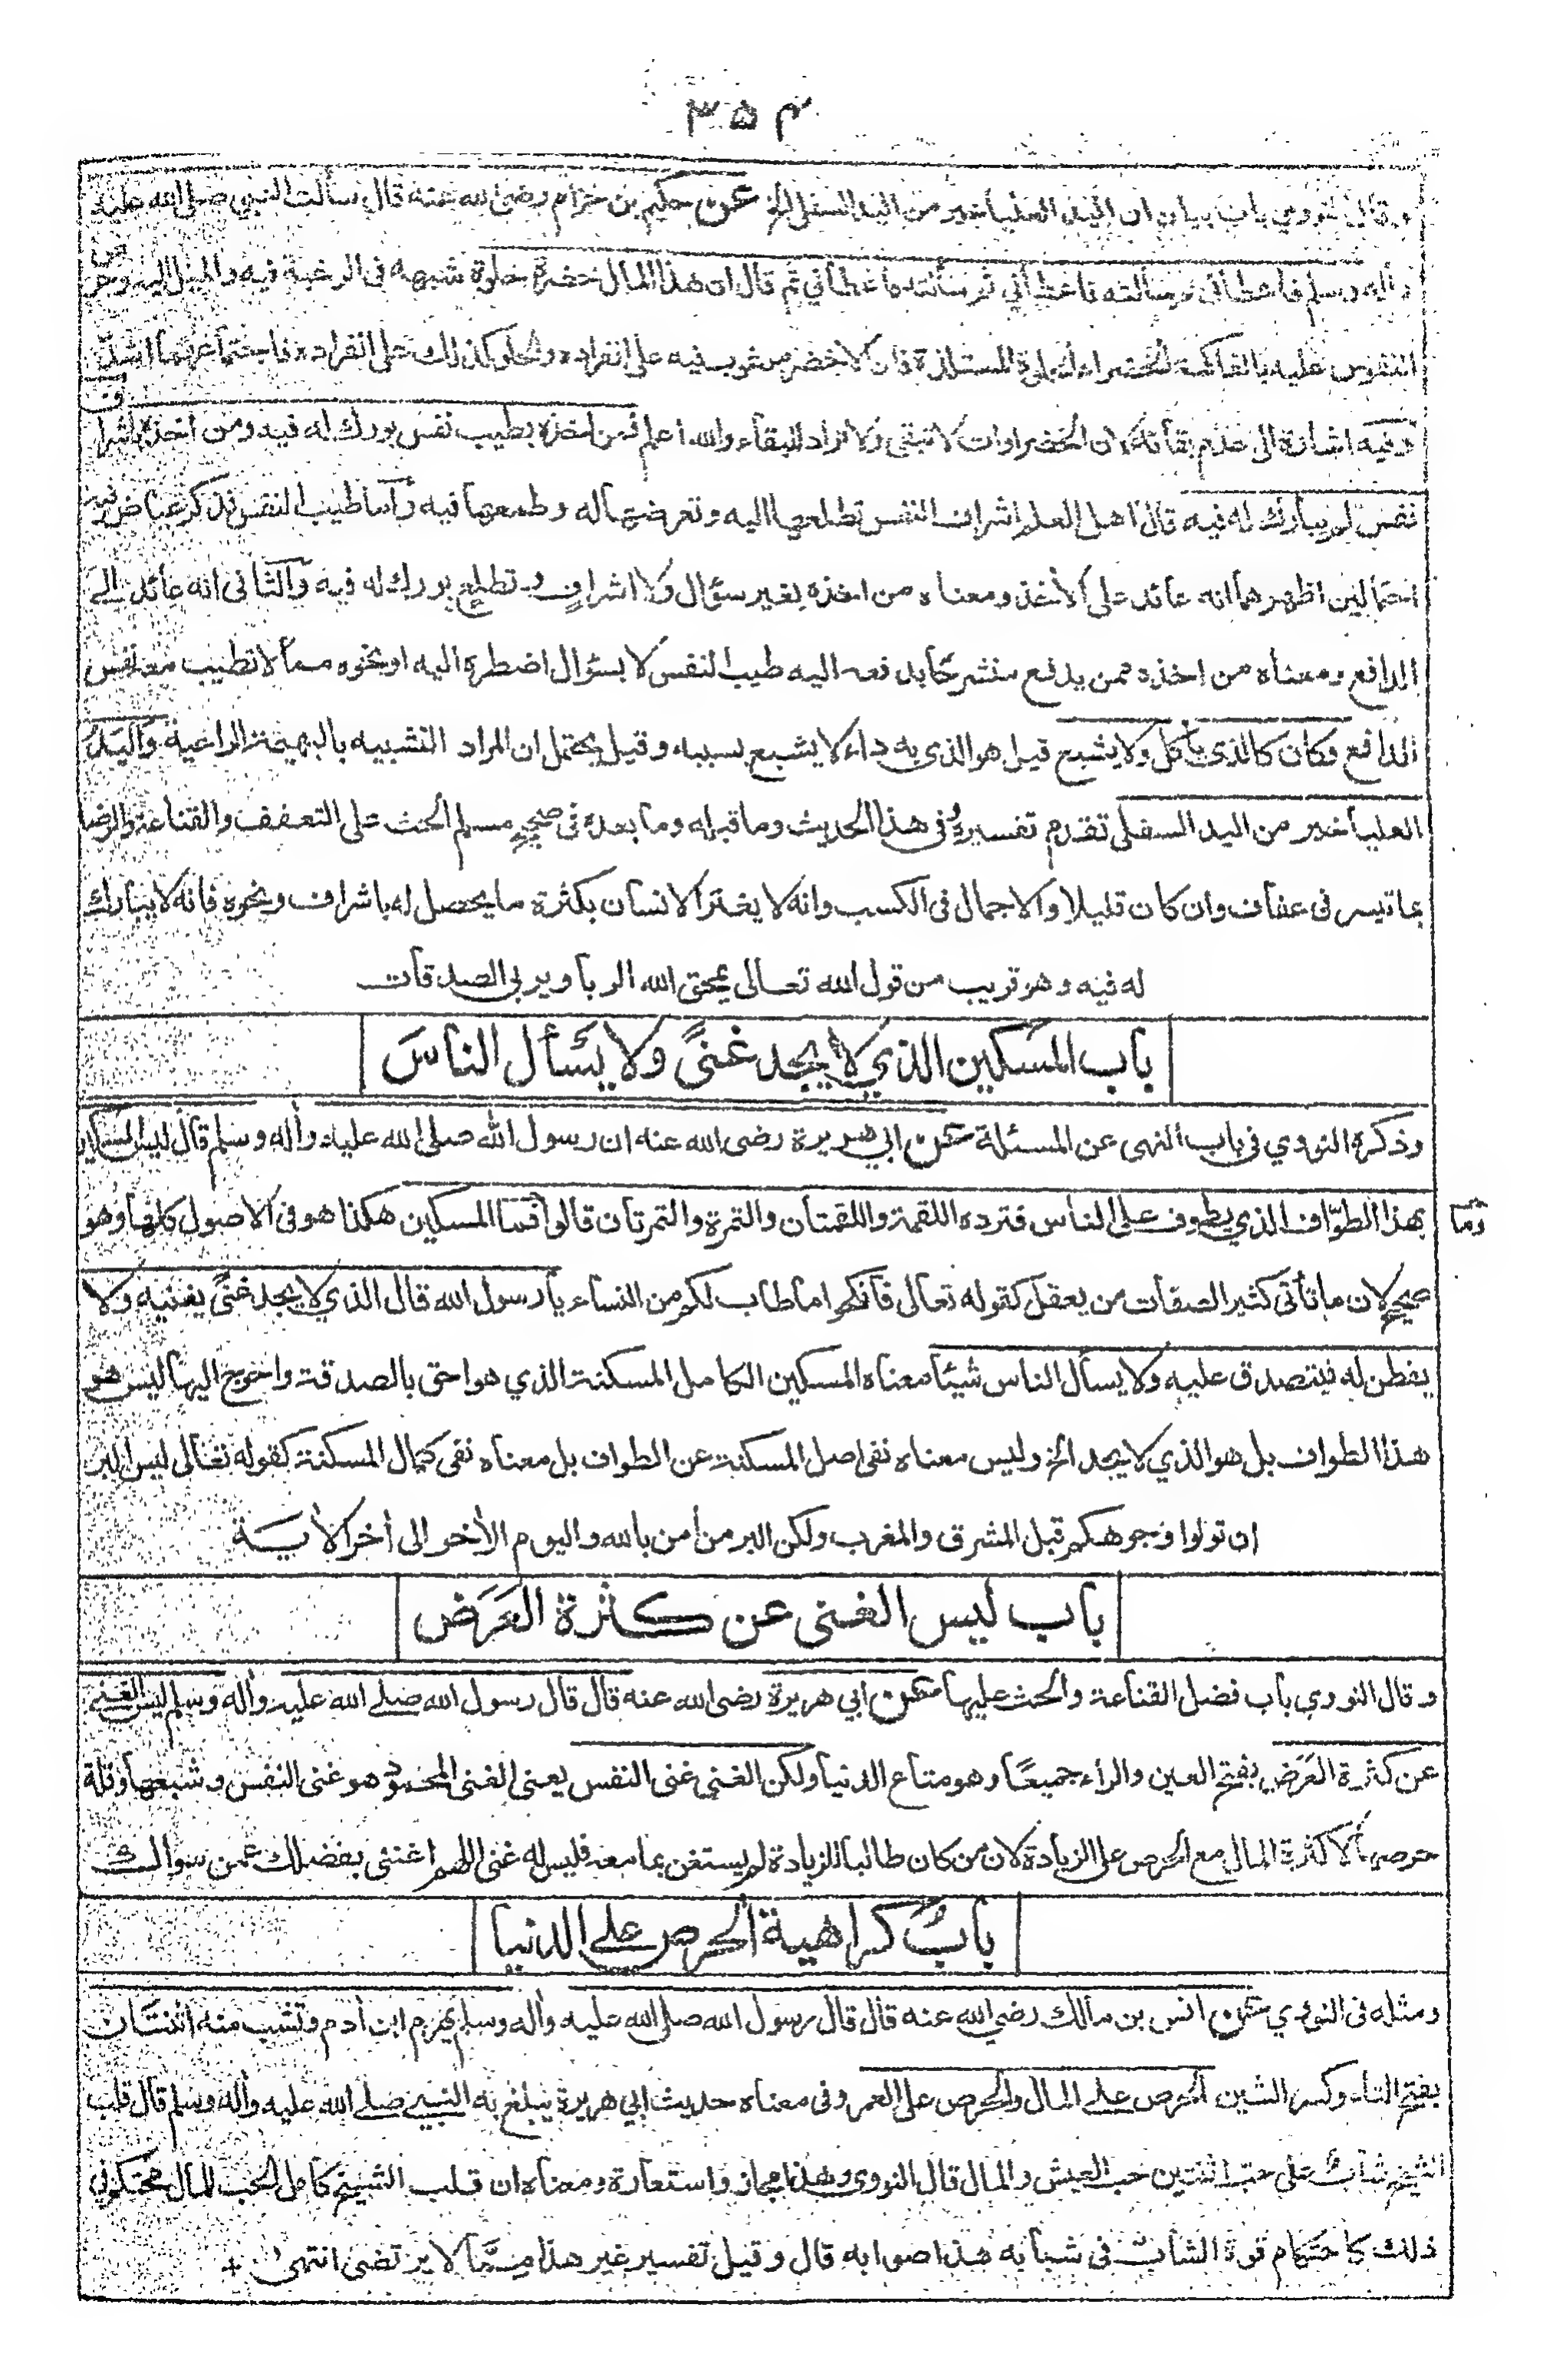 ٣٥٤
وقال النووي باب بيان ان اليد العليا خير من اليد السفلى الخ عن حكيم بن حزام رضي الله عنه قال سألت النبي صلى الله عليه
وأله وسلم فأعطاني ثم سألته فاعطأني ثم سألته فأعطأني ثم قال ان هذا المال خضرة حلوة شبهه فى الرغبة فيه والميل اليه وحرص
النفوس عليه بالفاكهة الخضراء الحلوة المستلذة فان الاخضر مرغوب فيه على انفراده والحلو كذلك على انفراده فاجتماعهما اشد
وفيه اشارة الى عدم بقائه لان الخضراوات لا تبقى ولا تراد للبقاء والله اعلم فمن اخذه بطيب نفس بورك له فيه ومن اخذه باشراف
نفس لم يبارك له فيه قال اهل العلم اشراف النفس تطلعها اليه وتعرضها له وطمعها فيه وأما طيب النفس فذكر عياض فيه
احتمالين اظهرهما انه عائد على الأخذ ومعناه من اخذه بغير سؤال ولا اشراف وتطلع بورك له فيه والثاني انه عائد الى
الدافع ومعناه من اخذه ممن يدفع منشرحا بدفعه اليه طيب النفس لا بسؤال اضطره اليه او نحوه مما لا تطيب معه نفس
الدافع وكان كالذي يأكل ولا يشبع قيل هو الذي به داء لا يشبع بسببه وقيل يحتمل ان المراد التشبيه بالبهيمة الراعية واليد
العليا خير من اليد السفلى تقدم تفسيره وفى هذا الحديث وما قبله وما بعده فى صحيح مسلم الحث على التعفف والقناعة والرضا
بما تيسر فى عفاف وان كان قليلا والاجمال فى الكسب وانه لا يغتر الانسان بكثرة ما يحصل له باشراف ونحوه فانه لا يبارك
له فيه وهو قريب من قول الله تعالى يمحق الله الربا ويربى الصدقات
باب المسكين الذي لا يجد غنىً ولا يسأل الناس
وذكره النووي فى باب النهى عن المسئلة عن ابي هريرة رضى الله عنه ان رسول الله صلى الله عليه وأله وسلم قال ليس المسكين
بهذا الطوّاف الذي يطوف على الناس فترده اللقمة واللقمتان والتمرة والتمرتان قالوا فما المسكين هكذا هو فى الاصول كلها وهو
وما
صحيح لان ما تأتى كثير الصفات من يعقل كقوله تعالى فأنكحوا ما طاب لكم من النساء يأرسول الله قال الذي لا يجد غنىً يغنيه ولا
يفطن له فيتصدق عليه ولا يسأل الناس شيئا معناه المسكين الكامل المسكنة الذي هو احق بالصدقة واحوج اليها ليس هو
هذا الطواف بل هو الذي لا يجد الخ وليس معناه نفى اصل المسكنة عن الطواف بل معناه نفى كمال المسكنة كقوله تعالى ليس البر
ان تولوا وجوهكم قبل المشرق والمغرب ولكن البر من أمن بالله واليوم الأخر الى أخر الأية
باب ليس الغنى عن كثرة العَرَض
وقال النووي باب فضل القناعة والحث عليها عن ابي هريرة رضى الله عنه قال قال رسول الله صلى الله عليه وأله وسلم ليس الغنى
عن كثرة العَرَض بفتح العين والراء جميعًا وهو متاع الدنيا ولكن الغنى غنى النفس يعنى الغنى المحمود هو غنى النفس وشبعها وقلة
حرصها لا كثرة المال مع الحرص على الزيادة لان من كان طالبا للزيادة لم يستغن بما معه فليس له غنى اللهم اغننى بفضلك عمن سواك
بابُ كراهية الحرص على الدنيا
ومثله فى النووي عن انس بن مالك رضي الله عنه قال قال رسول الله صلى الله عليه وأله وسلم يهرم ابن أدم وتشب منه اثنتان
بفتح التاء وكسر الشين الحرص على المال والحرص على العمر وفى معناه حديث ابي هريرة يبلغ به النبي صلى الله عليه وأله وسلم قال قلب
الشيخ شاب على حب اثنتين حب العيش والمال قال النووي وهذا مجاز واستعارة ومعناه ان قلب الشيخ كامل الحب للمال محتكم فى
ذلك كاحتكام قوة الشاب فى شبابه هذا صوابه قال وقيل تفسير غير هذا مِمَّا لا يرتضى انتهى +